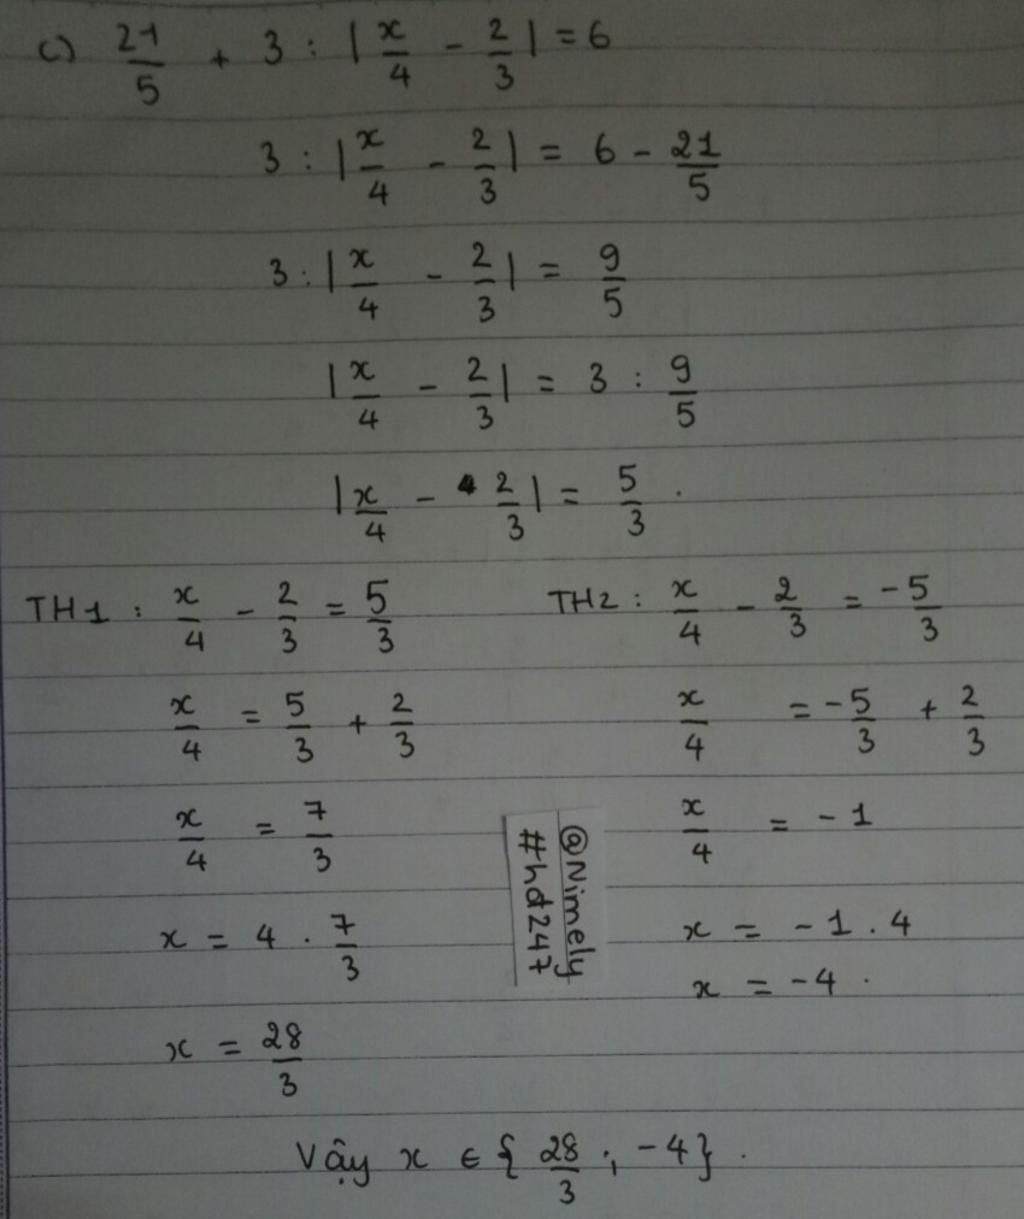 c) 21/5 + 3 : |x/4 - 2/3| = 6
3 : |x/4 - 2/3| = 6 - 21/5
3 : |x/4 - 2/3| = 9/5
|x/4 - 2/3| = 3 : 9/5
|x/4 - 2/3| = 5/3 .
TH1 : x/4 - 2/3 = 5/3
x/4 = 5/3 + 2/3
x/4 = 7/3
x = 4 . 7/3
x = 28/3
TH2 : x/4 - 2/3 = -5/3
x/4 = -5/3 + 2/3
x/4 = -1
x = -1 . 4
x = -4 .
@Nimely
#hd247
Vậy x ∈ {28/3 ; -4} .